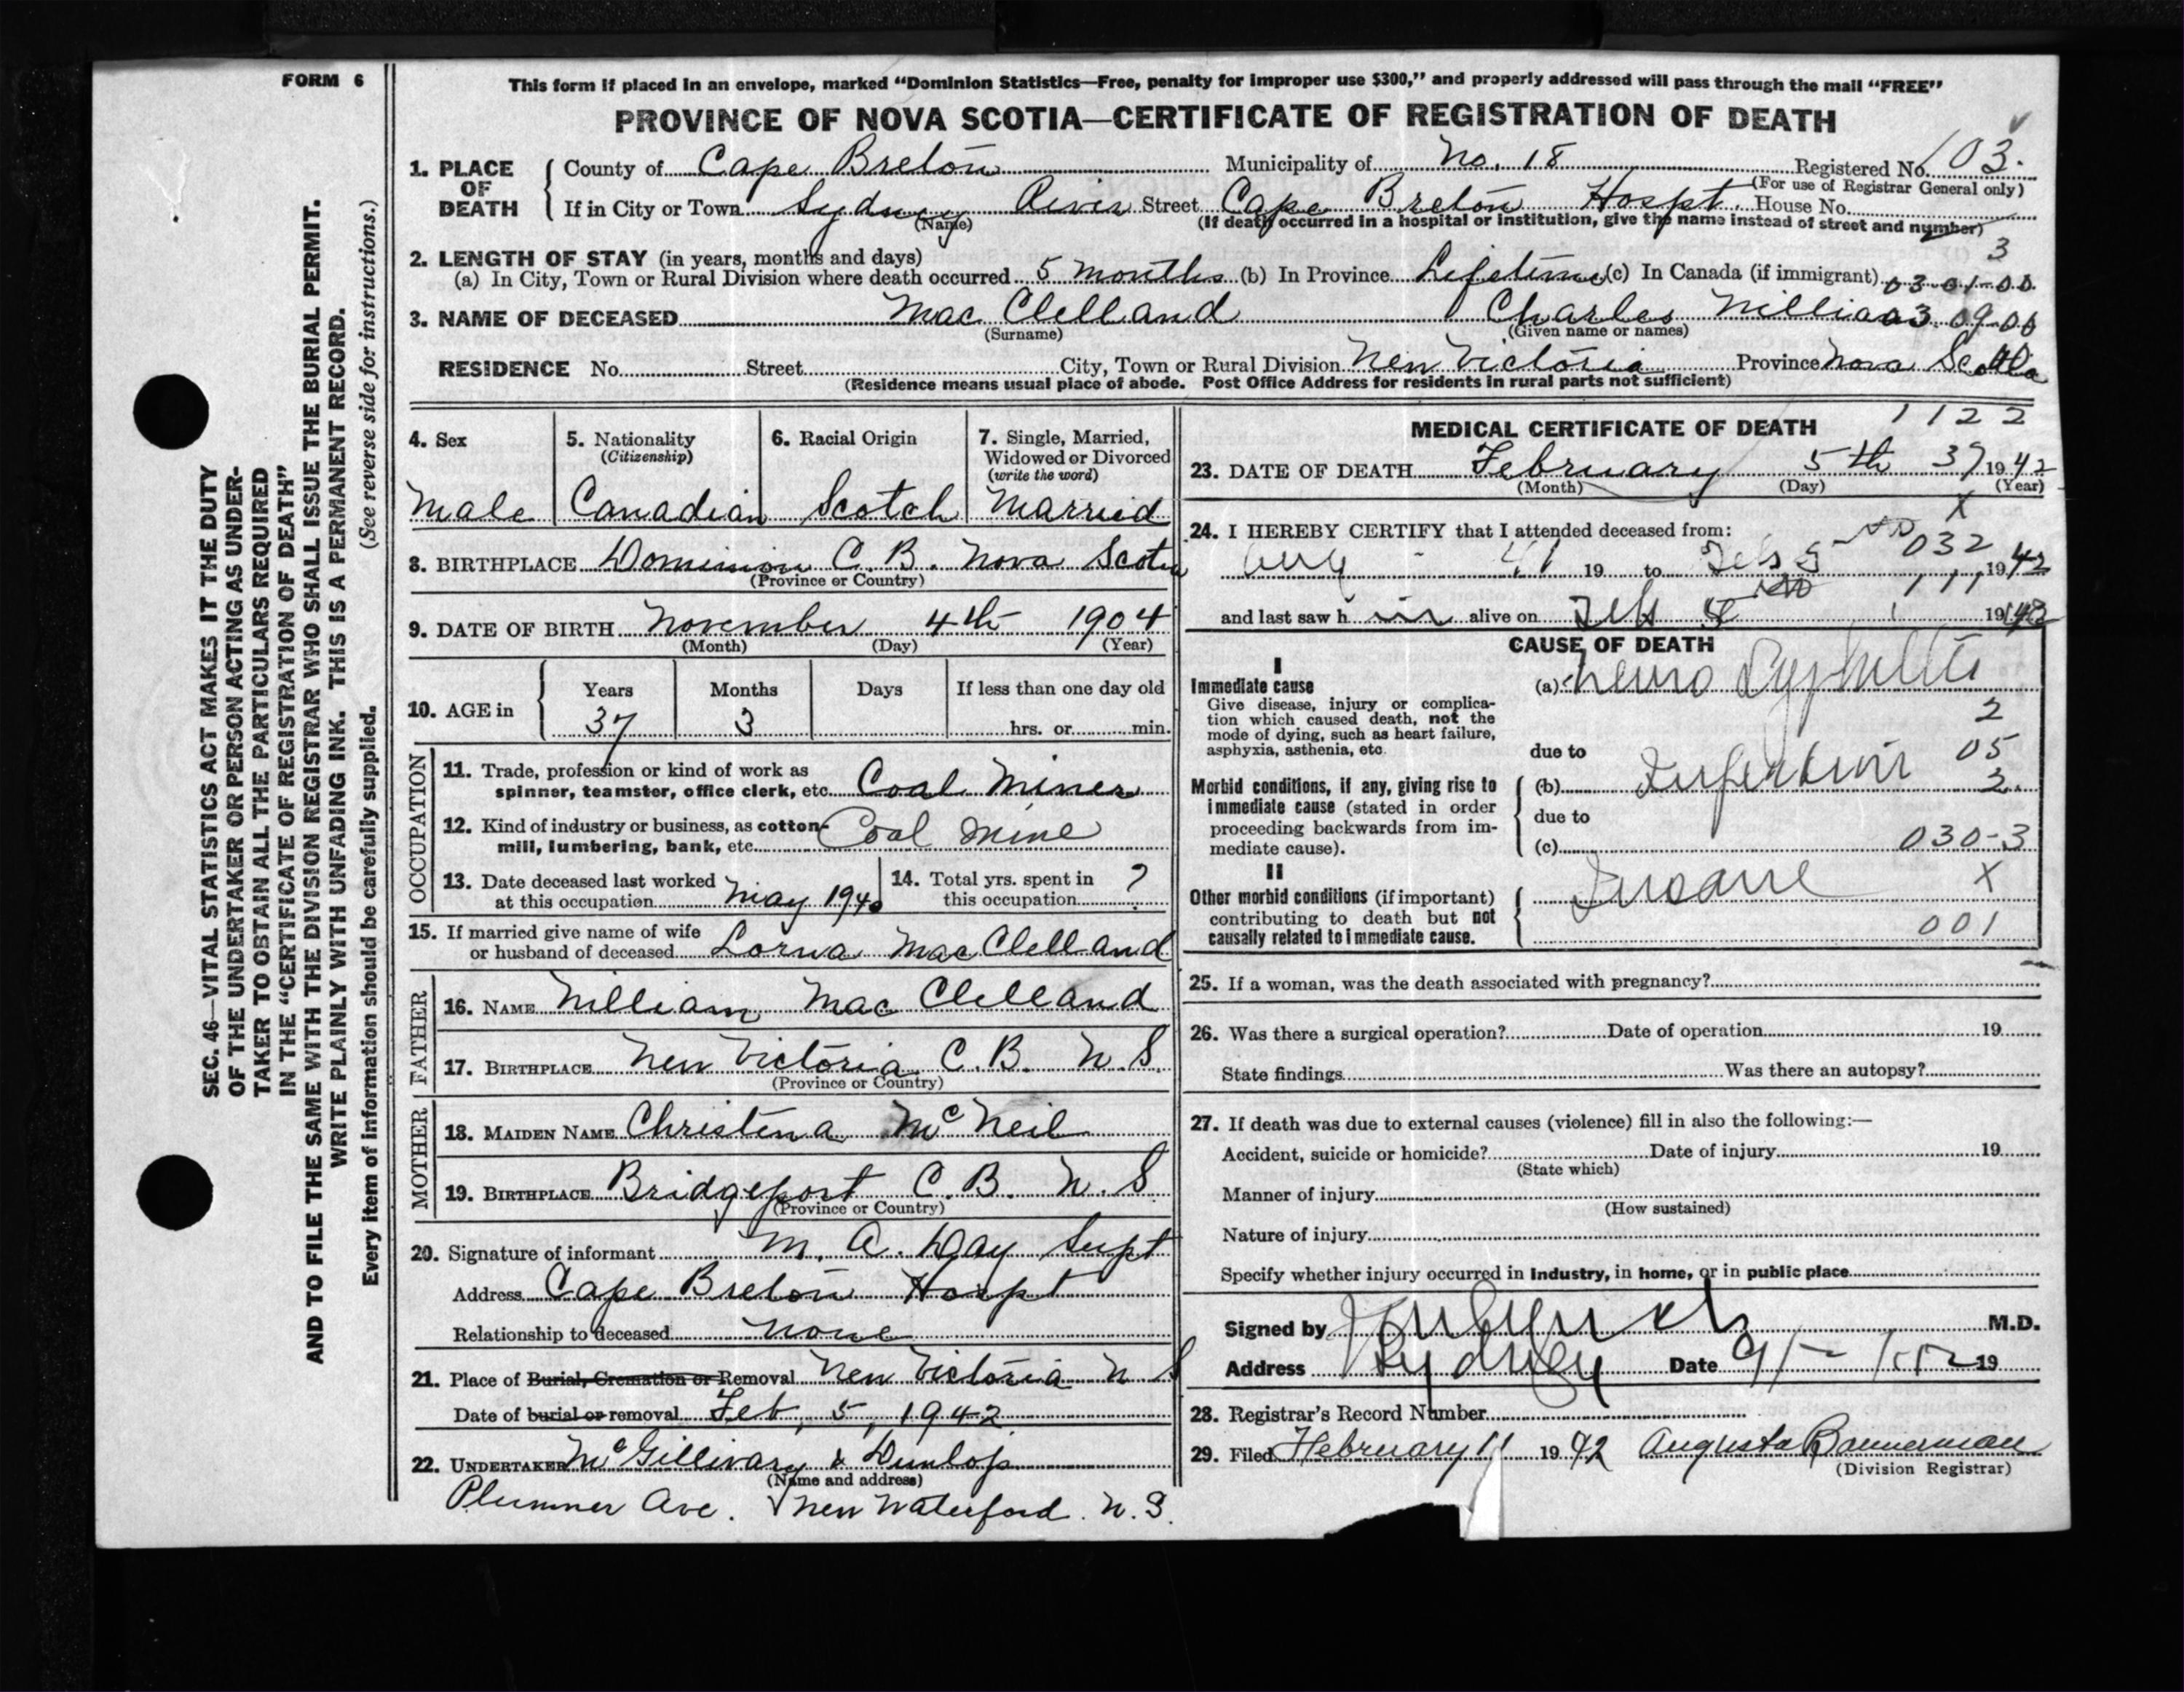 FORM 6
This form if placed in an envelope, marked “Dominion Statistics—Free, penalty for improper use $300,” and properly addressed will pass through the mail “FREE”
PROVINCE OF NOVA SCOTIA—CERTIFICATE OF REGISTRATION OF DEATH
1. PLACE OF DEATH County of Cape Breton Municipality of No. 18 Registered No. 103.
(For use of Registrar General only)
If in City or Town Sydney River Street Cape Breton Hospt. House No.
(Name) (If death occurred in a hospital or institution, give the name instead of street and number)
3
2. LENGTH OF STAY (in years, months and days)
(a) In City, Town or Rural Division where death occurred 5 months (b) In Province Lifetime (c) In Canada (if immigrant) 03-01-00
3. NAME OF DECEASED Mac Clelland Charles William 03 09-00
(Surname) (Given name or names)
RESIDENCE No. Street City, Town or Rural Division New Victoria Province Nova Scotia
(Residence means usual place of abode. Post Office Address for residents in rural parts not sufficient)
4. Sex Male
5. Nationality (Citizenship) Canadian
6. Racial Origin Scotch
7. Single, Married, Widowed or Divorced (write the word) Married
8. BIRTHPLACE Dominion C.B. Nova Scotia
(Province or Country)
9. DATE OF BIRTH November 4th 1904
(Month) (Day) (Year)
10. AGE in Years Months Days If less than one day old
37 3 hrs. or min.
OCCUPATION
11. Trade, profession or kind of work as
spinner, teamster, office clerk, etc. Coal Miner
12. Kind of industry or business, as cotton-
mill, lumbering, bank, etc. Coal Mine
13. Date deceased last worked
at this occupation May 1940
14. Total yrs. spent in
this occupation ?
15. If married give name of wife
or husband of deceased Lorna MacClelland
FATHER
16. NAME William Mac Clelland
17. BIRTHPLACE New Victoria C.B. N.S.
(Province or Country)
MOTHER
18. MAIDEN NAME Christina McNeil
19. BIRTHPLACE Bridgeport C.B. N.S
(Province or Country)
20. Signature of informant M. A. Day Supt
Address Cape Breton Hospt
Relationship to deceased none
21. Place of Burial, Cremation or Removal New Victoria N S
Date of burial or removal Feb, 5, 1942
22. UNDERTAKER McGillivary & Dunlop
(Name and address)
Plummer Ave. New Waterford. N.S.
MEDICAL CERTIFICATE OF DEATH 1122
23. DATE OF DEATH February 5th 37 1942
(Month) (Day) (Year)
X
24. I HEREBY CERTIFY that I attended deceased from:
Aug 41 19 to Feb 5 032 1942
and last saw him alive on Feb 111 1942
CAUSE OF DEATH
I
Immediate cause
Give disease, injury or complica-
tion which caused death, not the
mode of dying, such as heart failure,
asphyxia, asthenia, etc.
(a) Neuro Syphilis
2
due to 05
Morbid conditions, if any, giving rise to
immediate cause (stated in order
proceeding backwards from im-
mediate cause).
(b) Infection 2.
due to
(c) 030-3
II
Other morbid conditions (if important)
contributing to death but not
causally related to immediate cause.
Insane X
001
25. If a woman, was the death associated with pregnancy?
26. Was there a surgical operation? Date of operation 19
State findings Was there an autopsy?
27. If death was due to external causes (violence) fill in also the following:—
Accident, suicide or homicide? Date of injury 19
(State which)
Manner of injury
(How sustained)
Nature of injury
Specify whether injury occurred in industry, in home, or in public place
Signed by M.D.
Address Sydney Date 19
28. Registrar’s Record Number
29. Filed February 11 1942 Augusta Bannerman
(Division Registrar)
SEC. 46—VITAL STATISTICS ACT MAKES IT THE DUTY
OF THE UNDERTAKER OR PERSON ACTING AS UNDER-
TAKER TO OBTAIN ALL THE PARTICULARS REQUIRED
IN THE “CERTIFICATE OF REGISTRATION OF DEATH”
AND TO FILE THE SAME WITH THE DIVISION REGISTRAR WHO SHALL ISSUE THE BURIAL PERMIT.
WRITE PLAINLY WITH UNFADING INK. THIS IS A PERMANENT RECORD.
Every item of information should be carefully supplied. (See reverse side for instructions.)